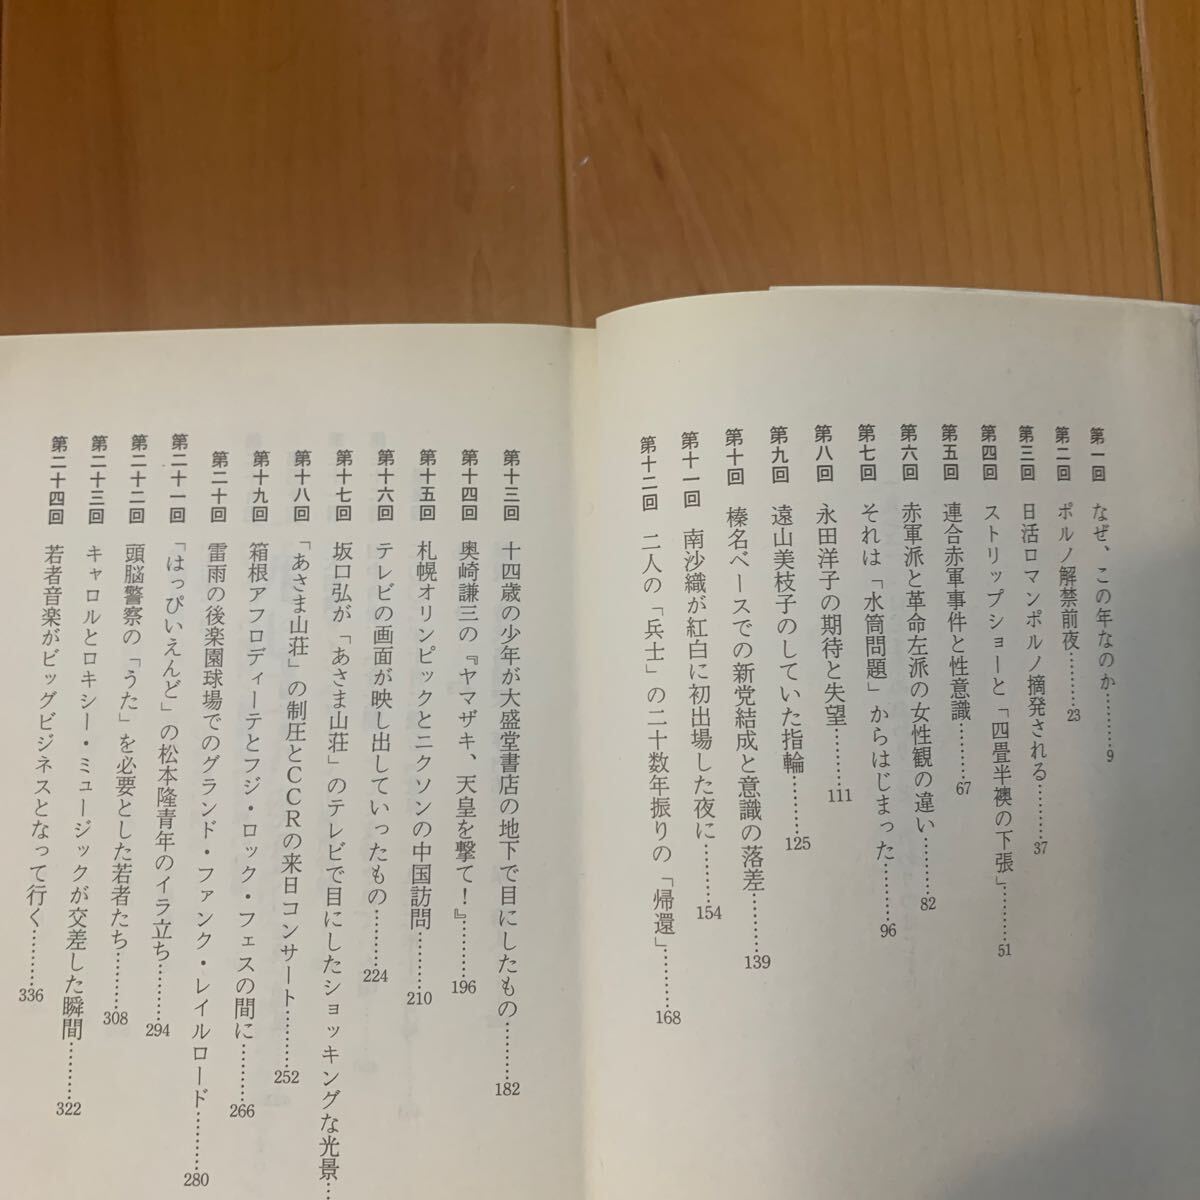 第一回 なぜ、この年なのか………9
第二回 ポルノ解禁前夜………23
第三回 日活ロマンポルノ摘発される………37
第四回 ストリップショーと「四畳半襖の下張」………51
第五回 連合赤軍事件と性意識………67
第六回 赤軍派と革命左派の女性観の違い………82
第七回 それは「水筒問題」からはじまった………96
第八回 永田洋子の期待と失望………111
第九回 遠山美枝子のしていた指輪………125
第十回 榛名ベースでの新党結成と意識の落差………139
第十一回 南沙織が紅白に初出場した夜に………154
第十二回 二人の「兵士」の二十数年振りの「帰還」………168
第十三回 十四歳の少年が大盛堂書店の地下で目にしたもの………182
第十四回 奥崎謙三の『ヤマザキ、天皇を撃て!』………196
第十五回 札幌オリンピックとニクソンの中国訪問………210
第十六回 テレビの画面が映し出していったもの………224
第十七回 坂口弘が「あさま山荘」のテレビで目にしたショッキングな光景…
第十八回 「あさま山荘」の制圧とCCRの来日コンサート………252
第十九回 箱根アフロディーテとフジ・ロック・フェスの間に………266
第二十回 雷雨の後楽園球場でのグランド・ファンク・レイルロード………280
第二十一回 「はっぴいえんど」の松本隆青年のイラ立ち………294
第二十二回 頭脳警察の「うた」を必要とした若者たち………308
第二十三回 キャロルとロキシー・ミュージックが交差した瞬間………322
第二十四回 若者音楽がビッグビジネスとなって行く………336